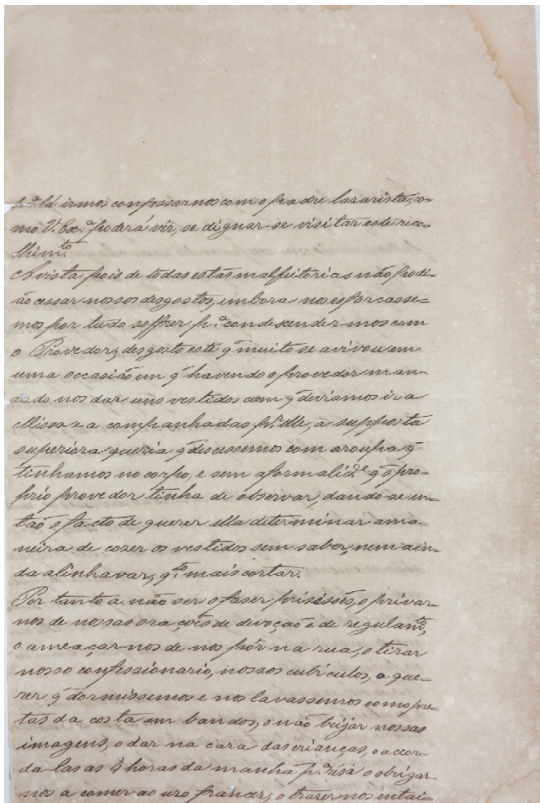 p.ª lá irmos confessarnos com o padre lazarista, co-
mo V. Ex.ª poderá vêr, se dignar-se visitar este reco-
lhim.to
Á vista pois de todas estas malfeitorias não podi-
ão cessar nossos desgostos, embora nos esforcasse-
mos por tudo soffrer p.ª condescender-mos com
o Provedor, desgosto este q̃ muito se avivou em
uma occasião em q̃ havendo o provedor man-
dado nos dar uns vestidos com q̃ deviamos ir a
Missa e a companhadas p.r elle, a supposta
superiora queria q̃ descessemos com aroupa q̃
tinhamos no corpo, e sem aformalid.e q̃ o pro-
prio provedor tinha de observar, dando-se en-
tão o facto de querer ella determinar ama-
neira de cozer os vestidos sem saber, nem ain-
da alinhavar, q.to mais cortar.
Por tanto a não ser o faser prisissões, o privar-
nos de nossas orações de devoção e de regulam.to,
o ameaçar-nos de nos pôr na rua, o tirar
nosso confessionario, nossos cubiculos, o que-
rer q̃ dormissemos e nos lavassemos com pre-
tas da costa em bandos, o não beijar nossas
imagens, o dar na cara das crianças, o acor-
da-las as 3 horas da manhã p.ª o obrigar-
nos a comer ao uzo francez, o trazer nos